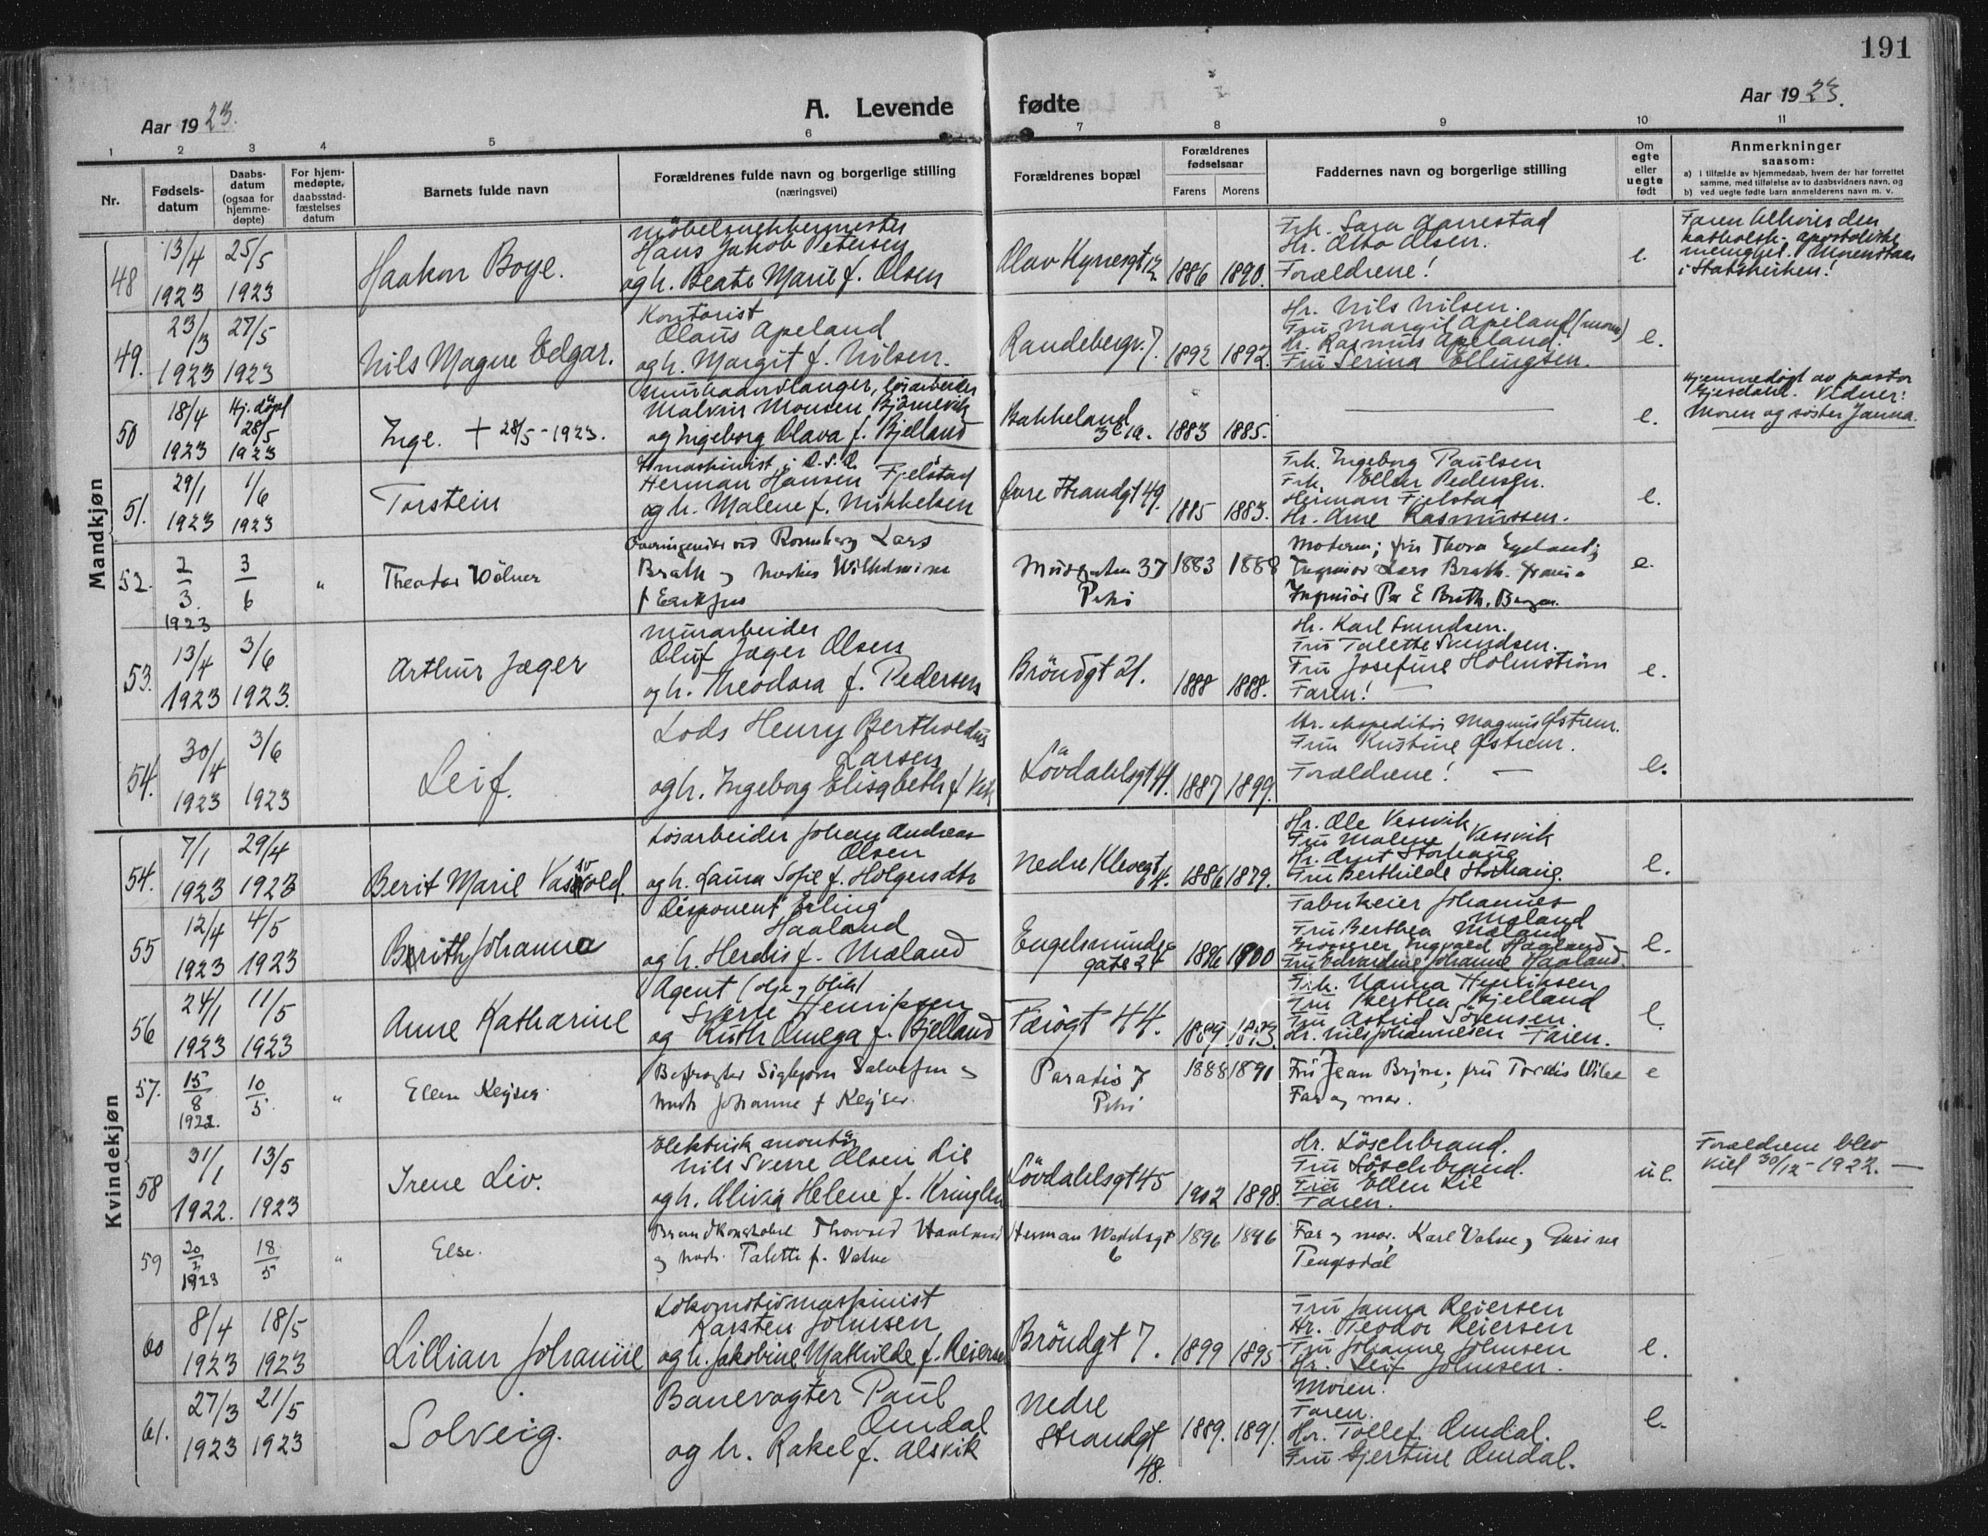 191
Aar 1923.
A. Levende fødte
Aar 1923.
1 2 3 4 5 6 7 8 9 10 11
Nr.
Fødsels-
datum
Daabs-
datum
(ogsaa for
hjemme-
døpte)
For hjem-
medøpte,
daabsstad-
fæstelses
datum
Barnets fulde navn
Forældrenes fulde navn og borgerlige stilling
(næringsvei)
Forældrenes bopæl
Forældrenes
fødselsaar
Farens Morens
Faddernes navn og borgerlige stilling
Om
egte
eller
uegte
født
Anmerkninger
saasom:
a) i tilfælde av hjemmedaab, hvem der har forrettet
samme, med tilføielse av to daabsvidners navn, og
b) ved uegte født barn anmelderens navn m. v.
Mandkjøn
48
13/4 1923
25/5 1923
Haakon Boye.
Hans Jakob Petersen
og h. Beate Marie f. Olsen
Olav Kyrresgt 12
1886 1890.
Frk. Sara Aarrestad
Hr. Otto Olsen.
Forældrene!
e.
Faren tilhører den
katholsk-apostoliske
menighet. Moren staar
i Statskirken!
49.
23/3 1923
27/5 1923
Nils Magne Edgar.
Kontorist
Olaus Apeland
og h. Margit f. Nilsen.
Randebergv. 7.
1892 1892.
Hr. Nils Nilsen.
Fru Margit Apeland (moren)
Hr. Rasmus Apeland.
Fru Serina Ellingsen.
e.
50
18/4 1923
Hj. døpt
28/5 1923
Inge. + 28/5-1923.
Murhaandlanger, løsarbeider
Malvin Monsen Bjørnevik
og Ingeborg Olava f. Bjelland
Bakkeland
1883 1885.
e.
Hjemmedøpt av pastor
Gjesdahl. Vidner:
Moren og søster Janna.
51.
29/1 1923
1/6 1923
Torstein
Herman Hansen Fjelstad
og h. Malene f. Mikkelsen
Øvre Strandgt 49.
1885 1883.
Frk. Ingeborg Paulsen
Frk. Ellen Pedersen.
Herman Fjelstad
Hr. Arne Rasmussen.
e.
52.
2/3. 1923
3/6
"
Theodor Wölner
Overingeniør ved Rosenberg Lars
Brath og hustru Wilhelmine
f Eriksen
Musegaten 37
Petri
1883 1888
Moderen; fru Thora Egeland;
Ingeniør Lars Brath.
Ingeniør Per E Brath. Bergen.
e.
53.
13/4 1923
3/6 1923.
Arthur Jæger
Murarbeider
Oluf Jæger Olsen
og h. Theodora f. Pedersen
Bröndgt 21.
1888 1888.
Hr. Karl Svendsen.
Fru Talette Svendsen.
Fru Josefine Holmström
Faren!
e.
54.
30/4 1923
3/6 1923
Leif.
Lods Henry Bertholdus
Larsen
og h. Ingeborg Elisabeth f. Vik
Lövdahlsgt 41.
1887 1899.
Hr. ekspeditör Magnus Østrem.
Fru Kristine Østrem.
Forældrene!
e.
Kvindekjøn
54.
7/1 1923
29/4 1923
Berit Marie Vasvold
Løsarbeider Johan Andreas
Olsen
og h. Laura Sofie f. Holgersdtr
Nedre Klevegt
1886 1879.
Hr. Ole Vesvik
Fru Malene Vesvik
Hr. Arnt Storhaug
Fru Berthilde Storhaug.
e.
55
12/4 1923
4/5 1923
Berith Johanna
Disponent Erling
Haaland
og h. Herdis f. Mæland
Engelsminde
gate 24
1896 1900
Fabrikeier Johannes
Mæland
Fru Berthea Mæland
Grosserer Ingvald Haaland
Fru Edvardine Johanne Haaland.
e.
56
24/1 1923
11/5 1923
Anne Katharine
Agent (olje og blik)
Sverre Henriksen
og Ruth Omega f. Bjelland
Færøgt 44.
1889 1893.
Frk. Nanna Henriksen
Fru Berthea Bjelland
Fru Astrid Sörensen
Hr. Nils Johannesen Faren.
e.
57.
15/8 1922.
10/5
"
Ellen Keyser
Befragter Sigbjørn Salvesen og
hustr Johanne f Keyser.
Paradis 7
Petri
1888 1891
Far og mor.
e
58
31/1 1922.
13/5 1923
Irene Liv.
Elektrisk montör
Nils Sverre Olsen Lie
og h. Olivia Helene f. Kringlen
Lövdahlsgt 45
1902 1898.
Hr. Löschbrand.
Fru Löschbrand.
Fru Ellen Lie
Faren.
u e.
Forældrene blev
viet 30/12-1922.
59
20/2 1923
18/5
"
Else.
Brandkonstabel Thorvald Haaland
og hustr. Talette f. Valne
Herman Wedelsgt
6
1896 1896
Far og mor. Karl Valne og Gurine
Tengesdal
60
8/4 1923
18/5 1923
Lillian Johanne
Lokomotivmaskinist
Karsten Johnsen
og h. Jakobine Mathilde f. Reiersen
Bröndgt 7.
1899 1895
Fru Janna Reiersen
Hr. Teodor Reiersen
Fru Johanne Johnsen
Hr. Leif Johnsen.
e.
61.
27/3 1923
21/5 1923
Solveig.
Banevogter Paul
Omdal
og h. Rakel f. Alsvik
Nedre
Strandgt
48.
1889. 1891.
Moren!
Faren.
Hr. Tollef Omdal.
Fru Gjertine Omdal.
e.